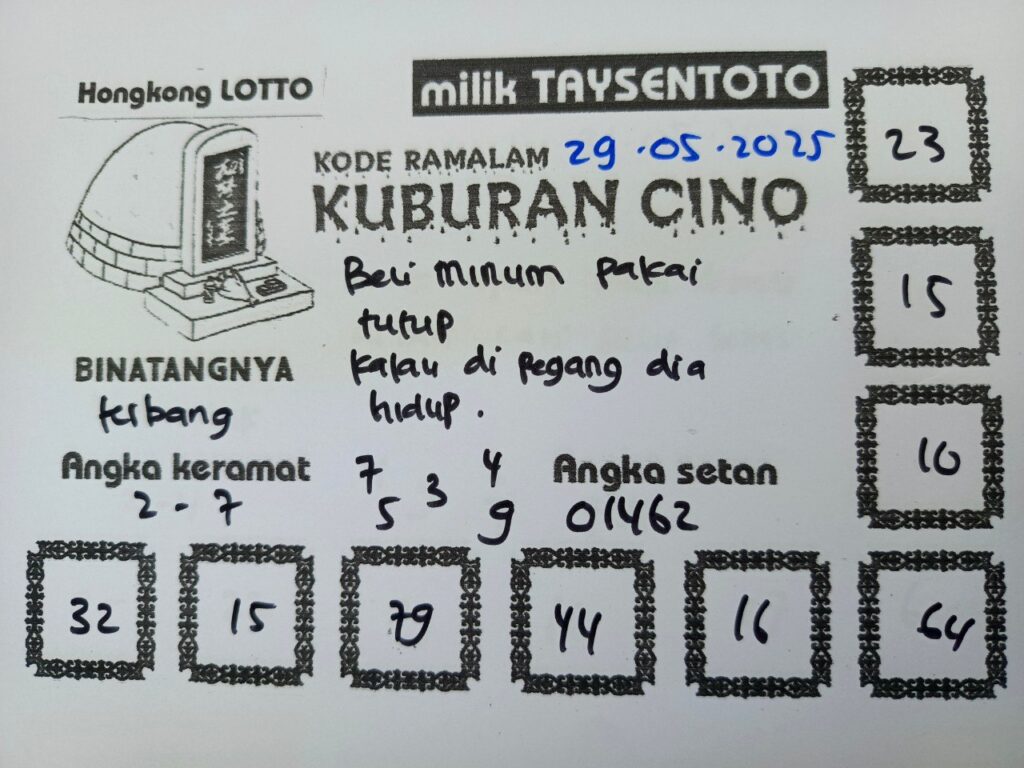 Hongkong LOTTO
milik TAYSENTOTO
KODE RAMALAM 29.05.2025
KUBURAN CINO
Beli minum pakai
tutup
kalau di pegang dia
hidup.
BINATANGNYA
terbang
Angka keramat
2 - 7
7 4
5 3 9
Angka setan
01462
23
15
10
32 15 79 44 16 64